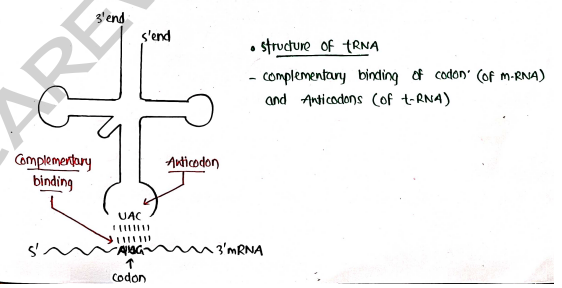 3'end
5'end
• structure of tRNA
- complementary binding of codon (of m-RNA)
and Anticodons (of t-RNA)
Complementary
binding
Anticodon
UAC
5' AUG 3' mRNA
codon